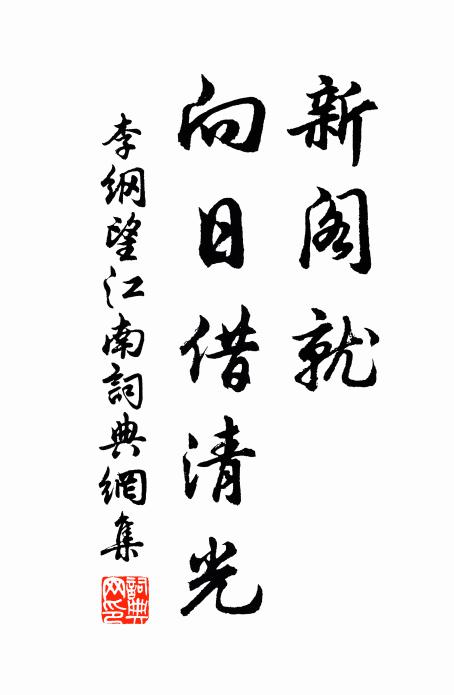 新阁就
向日借清光
李纲望江南詞典網集
詞典網印